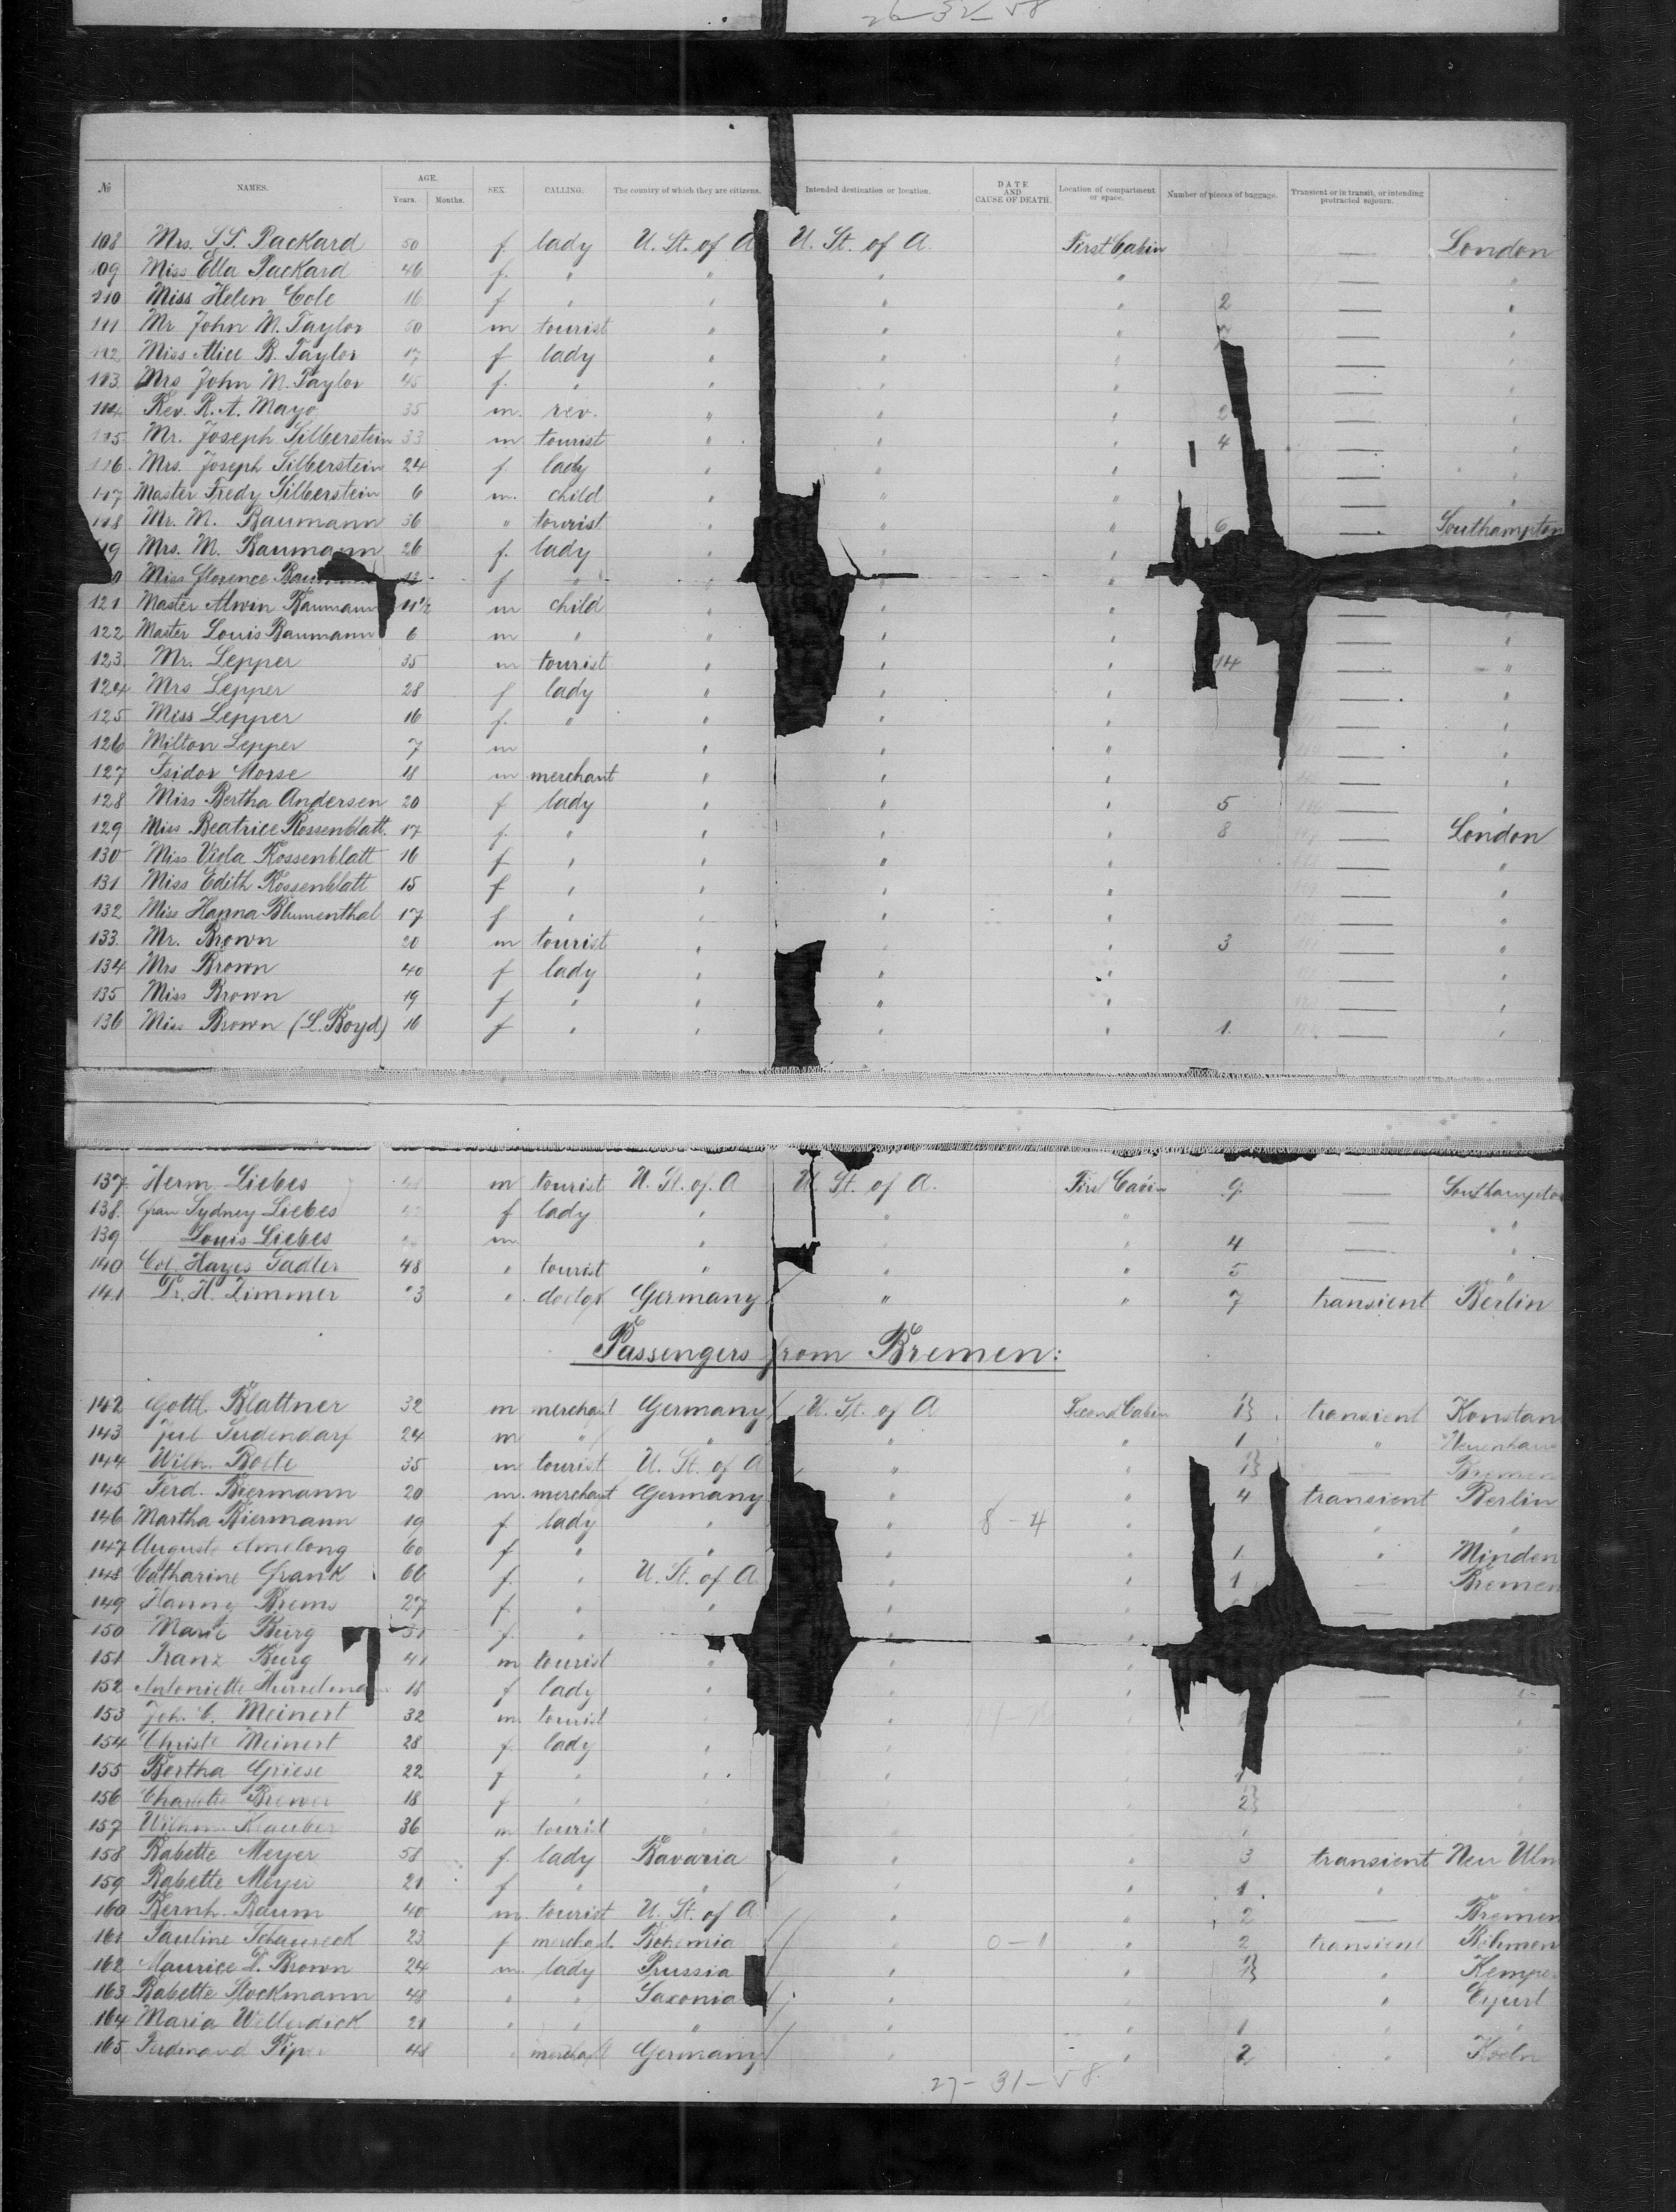 26-32-58
№ NAMES. AGE. Years. Months. SEX. CALLING. The country of which they are citizens. Intended destination or location. DATE AND CAUSE OF DEATH. Location of compartment or space. Number of pieces of baggage. Transient or in transit, or intending protracted sojourn.
108 Mrs. S.S. Packard 50 f lady U. St. of A U. St. of A. First Cabin — London
109 Miss Ella Packard 46 f. " " " " — "
110 Miss Helen Cole 16 f " " " " 2 — "
111 Mr John M. Taylor 50 m tourist " " " — "
112 Miss Alice B. Taylor 17 f lady " " " — "
113. Mrs John M. Taylor 45 f. " " " " — "
114 Rev. R. A. Mayo 35 m. rev. " " " 2 — "
115 Mr. Joseph Silberstein 33 m tourist " " " 4 — "
116. Mrs. Joseph Silberstein 24 f. lady " " " — "
117 Master Fredy Silberstein 6 m. child " " " — "
118 Mr. M. Baumann 36 " tourist " " " 6 — Southampton
119 Mrs. M. Baumann 26 f. lady " " "
Miss Florence 12 f " " "
121 Master Alwin Baumann 11½ m child " " " —
122 Master Louis Baumann 6 m " " " " — "
123. Mr. Lepper 35 m tourist " " " 14 — "
124 Mrs Lepper 28 f lady " " " — "
125 Miss Lepper 16 f. " " " " — "
126 Milton Lepper 7 m " " " — "
127 Isidor Morse 18 m merchant " " " — "
128 Miss Bertha Andersen 20 f lady " " " 5 — "
129 Miss Beatrice Rossenblatt. 17 f. " " " " 8 — London
130 Miss Viola Rossenblatt 16 f " " " " — "
131 Miss Edith Rossenblatt 15 f " " " " — "
132 Miss Hanna Blumenthal 17 f " " " " — "
133. Mr. Brown 20 m tourist " " " 3 — "
134 Mrs Brown 40 f lady " " " — "
135 Miss Brown 19 f " " " " — "
136 Miss Brown (L. Boyd) 16 f " " " " 1. — "
137 Herm. Liebes m tourist U. St. of. A U. St. of A. First Cabin 9. — Southampton
138. Frau Sydney Liebes f lady " " " — "
139 Louis Liebes m " " 4 — "
140 Col. Hayes Sadler 48 " tourist " " " 5 — "
141 Dr. H. Zimmer " doctor Germany " " 7 transient Berlin
Passengers from Bremen:
142 Gottl. Blattner 32 m merchant Germany U. St. of A Second Cabin 1 transient Konstan
143 Jul Sudendarf 24 m " " " " 1 "
144 Wilh. Bolte 35 m tourist U. St. of A " " 1 — Bremen
145 Ferd. Biermann 20 m. merchant Germany " " 4 transient Berlin
146 Martha Biermann 19 f lady " " 8-4 " " "
147 Auguste Amelong 60 f " " " " 1 " Minden
148 Catharine Frank 66 f. " U. St. of A. " " 1 — Bremen
149 Hanny Brems 27 f. " " " " —
150 Marie Burg 31 f. " " "
151 Franz Burg 41 m tourist " " "
152 Antoniette 18 f lady " " " — "
153 Joh. C. Meinert 32 m. tourist " " — "
154 Christe Meinert 28 f. lady " " "
155 Bertha Griese 22 f " " " " 1
156 Charlotte Brewer 18 f " " " " 2 — "
157 Klauber 36 m tourist " "
158 Babette Meyer 58 f. lady Bavaria " " 3 transient Neu Ulm
159 Babette Meyer 21 f " " " " 1. "
160 Bernh. Baum 40 m. tourist U. St. of A " " 2 — Bremen
161 Pauline Schaureck 23 f merchant Bohemia " 0-1 " 2 transient Böhmen
162 Maurice D. Brown 24 m. lady Prussia " " 1 "
163 Babette Stockmann 48 " " Saxonia " " Erfurt
164 Maria Wellerdick 21 " " " " " 1 " "
165 Ferdinand 48 " merchant Germany " " 2 " Koeln
27-31-58